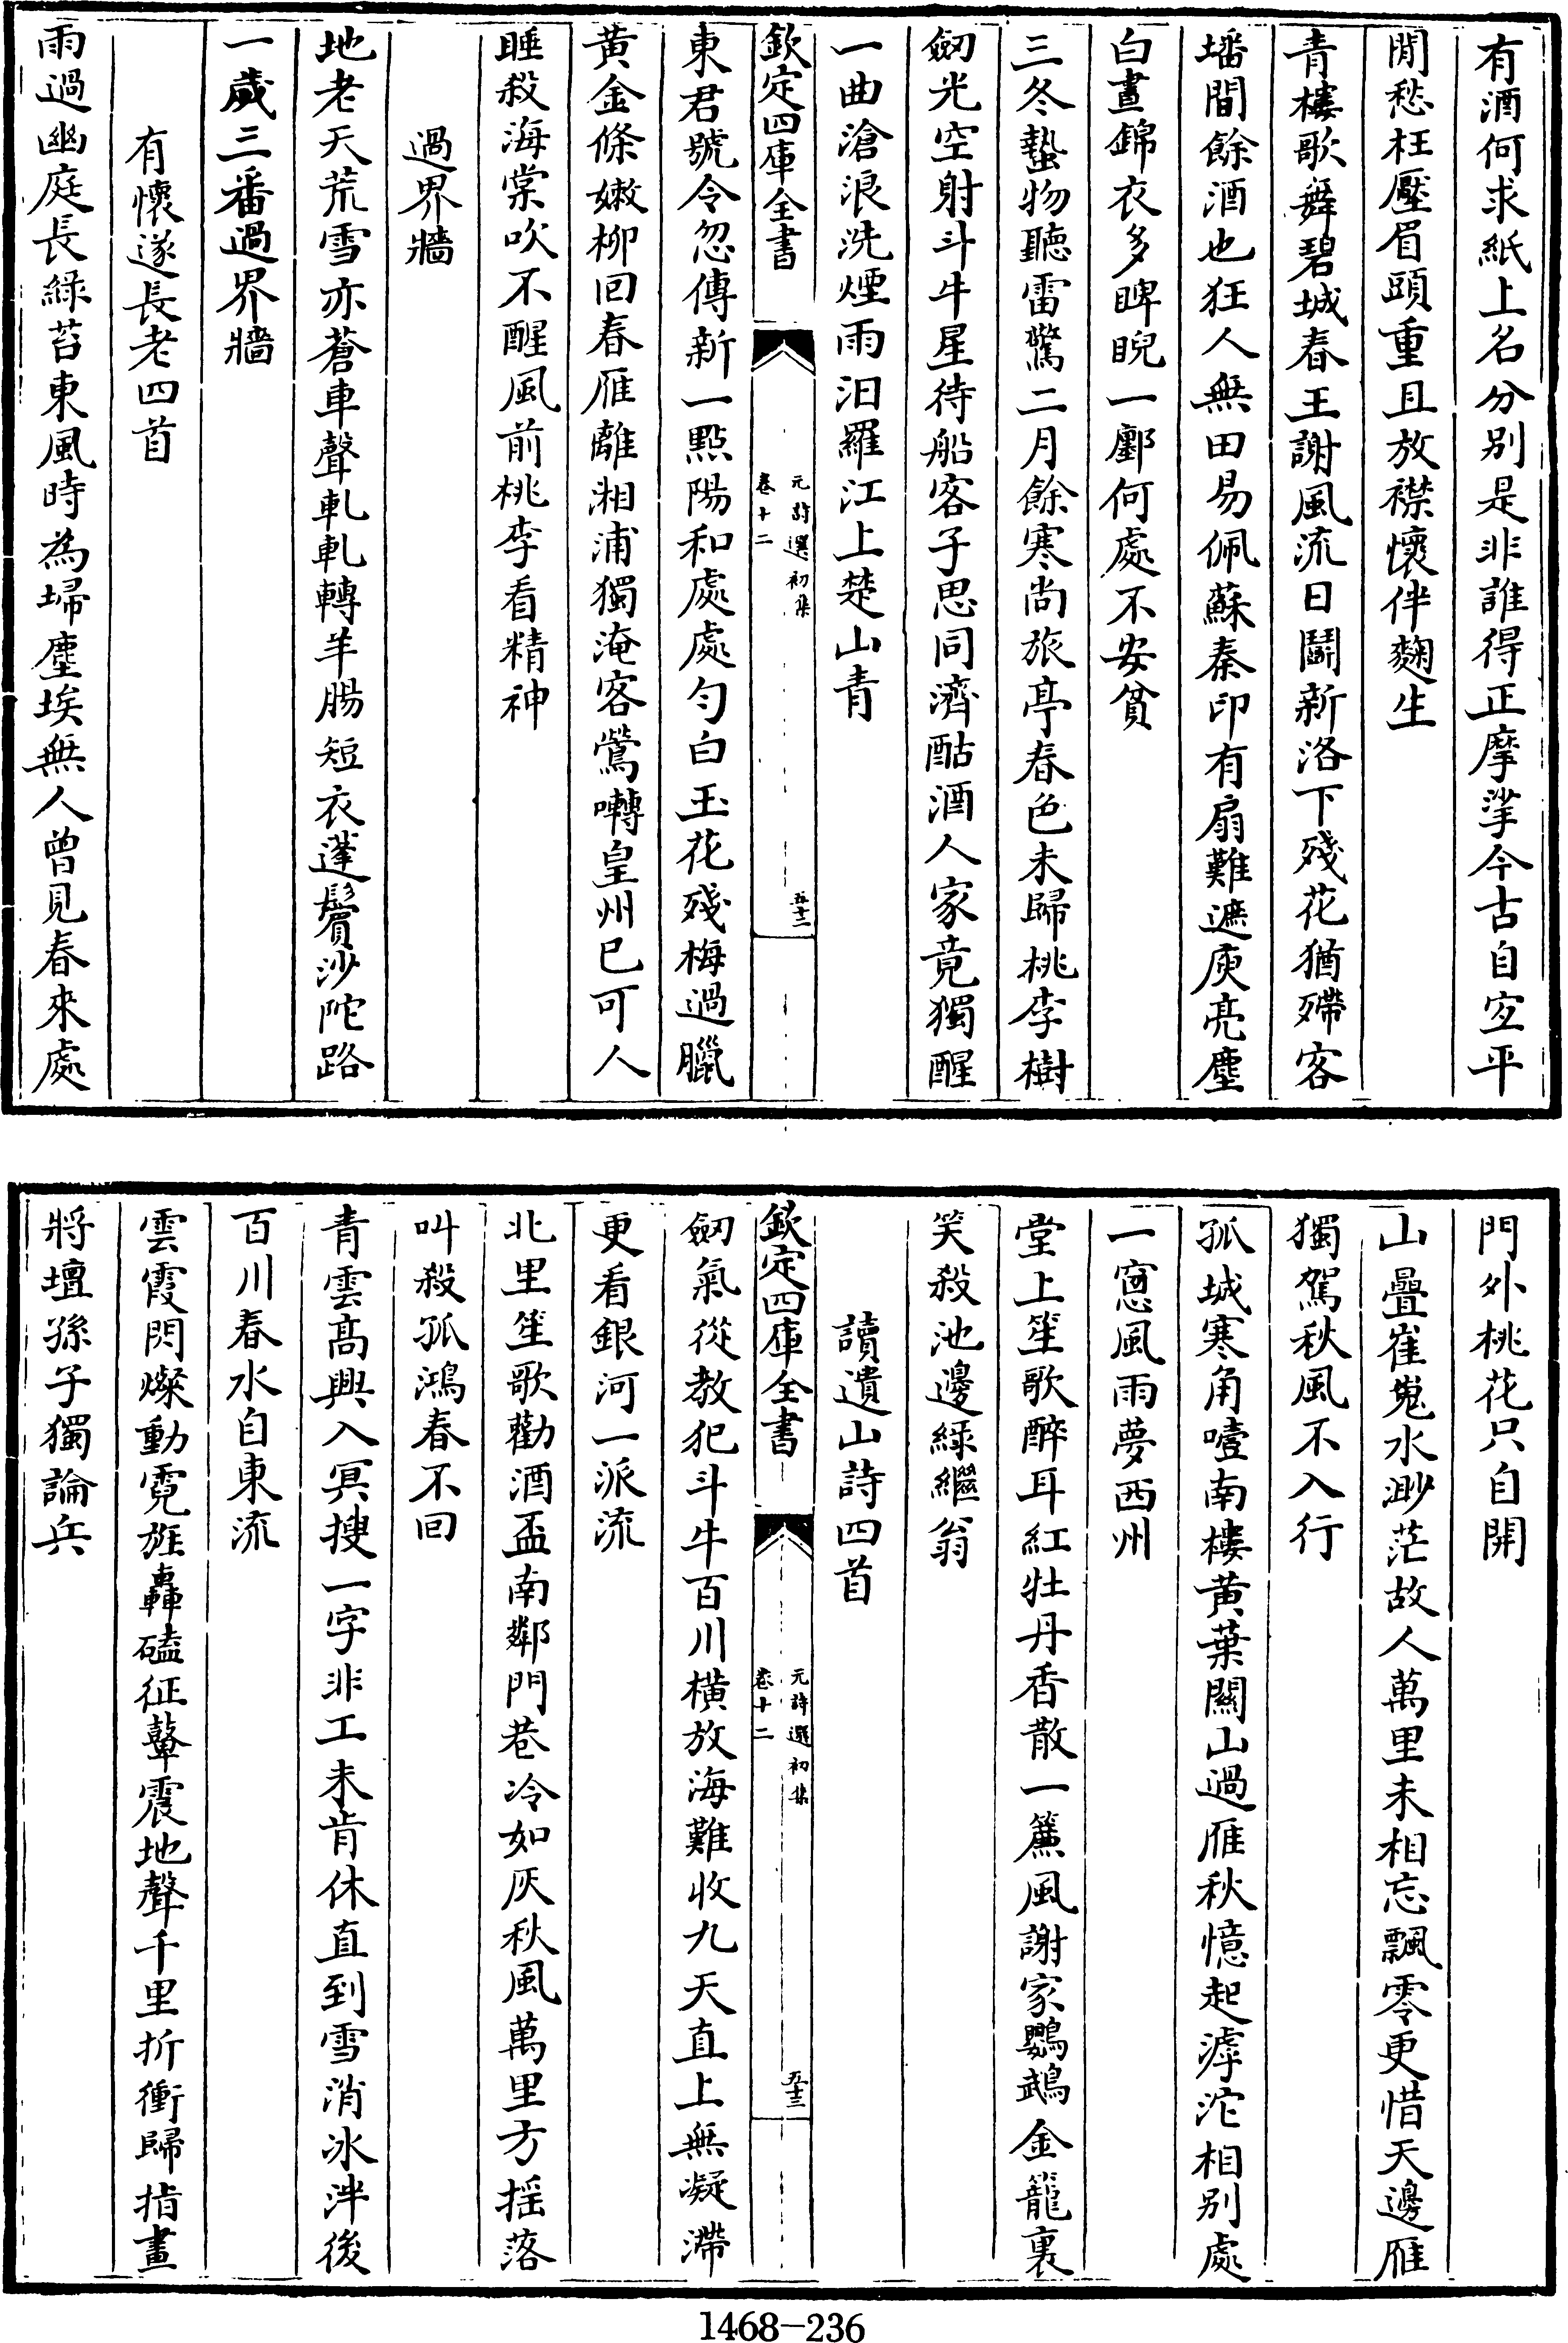 有酒何求紙上名分别是非誰得正摩挲今古自宜平
閒愁枉壓眉頭重且放襟懷伴麴生
青樓歌舞碧城春王謝風流日鬭新洛下殘花猶殢客
墦間餘酒也狂人無田易佩蘇秦印有扇難遮庾亮塵
白晝錦衣多睥睨一鄽何處不安貧
三冬蟄物聽雷驚二月餘寒尚旅亭春色未歸桃李樹
劒光空射斗牛星待船客子思同濟酤酒人家竟獨醒
一曲滄浪洗煙雨汨羅江上楚山青
欽定四庫全書
元詩選初集
卷十二
五十二
東君號令忽傳新一點陽和處處勻白玉花殘梅過臘
黄金條嫩柳回春雁離湘浦獨淹客鶯囀皇州已可人
睡殺海棠吹不醒風前桃李看精神
過界牆
地老天荒雪亦蒼車聲軋軋轉羊腸短衣蓬鬢沙陀路
一歲三番過界牆
有懷遂長老四首
雨過幽庭長綠苔東風時為埽塵埃無人曾見春來處
門外桃花只自開
山疊崔嵬水渺茫故人萬里未相忘飄零更惜天邊雁
獨駕秋風不入行
孤城寒角噎南樓黄葉關山過雁秋憶起滹沱相别處
一窻風雨夢西州
堂上笙歌醉耳紅牡丹香散一簾風謝家鸚鵡金籠裏
笑殺池邊綠繼翁
讀遺山詩四首
欽定四庫全書
元詩選初集
卷十二
五十三
劒氣從教犯斗牛百川横放海難收九天直上無凝滯
更看銀河一派流
北里笙歌勸酒盃南鄰門巷冷如灰秋風萬里方摇落
叫殺孤鴻春不回
青雲高興入冥搜一字非工未肯休直到雪消冰泮後
百川春水自東流
雲霞閃爍動霓旌轟磕征鼙震地聲千里折衝歸指畫
將壇孫子獨論兵
1468-236